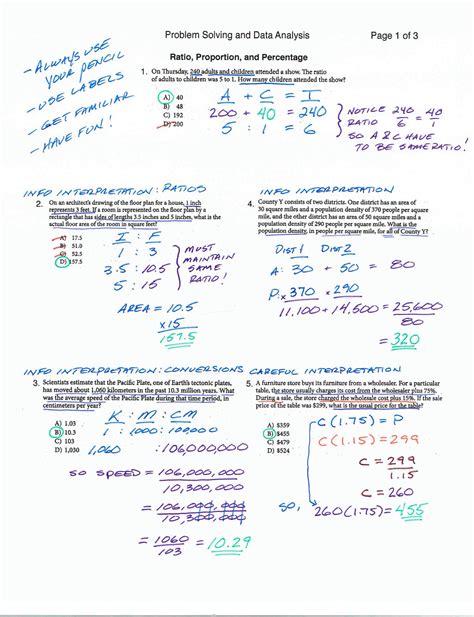 Problem Solving and Data Analysis
Page 1 of 3
- ALWAYS USE
YOUR PENCIL
- USE LABELS
- GET FAMILIAR
- HAVE FUN!
Ratio, Proportion, and Percentage
1. On Thursday, 240 adults and children attended a show. The ratio
of adults to children was 5 to 1. How many children attended the show?
A) 40
B) 48
C) 192
D) 200
A + C = T
200 + 40 = 240
5 : 1 = 6
NOTICE 240 = 40
RATIO 6 1
SO A & C HAVE
TO BE SAME RATIO!
INFO INTERPRETATION: RATIOS
2. On an architect's drawing of the floor plan for a house, 1 inch
represents 3 feet. If a room is represented on the floor plan by a
rectangle that has sides of lengths 3.5 inches and 5 inches, what is the
actual floor area of the room in square feet?
A) 17.5
B) 51.0
C) 52.5
D) 157.5
I : F
1 : 3
3.5 : 10.5
5 : 15
MUST
MAINTAIN
SAME
RATIO!
AREA = 10.5
x15
157.5
INFO INTERPRETATION
4. County Y consists of two districts. One district has an area of
30 square miles and a population density of 370 people per square
mile, and the other district has an area of 50 square miles and a
population density of 290 people per square mile. What is the
population density, in people per square mile, for all of County Y?
DIST 1 DIST 2
A: 30 + 50 = 80
P: x 370 x 290
11,100 + 14,500 = 25,600
80
= 320
INFO INTERPRETATION: CONVERSIONS
3. Scientists estimate that the Pacific Plate, one of Earth's tectonic plates,
has moved about 1,060 kilometers in the past 10.3 million years. What
was the average speed of the Pacific Plate during that time period, in
centimeters per year?
A) 1.03
B) 10.3
C) 103
D) 1,030
K : M : CM
1 : 1000 : 100000
1,060 : 106,000,000
SO SPEED = 106,000,000
10,300,000
= 106,000,000
10,300,000
= 1060 = 10.29
103
CAREFUL INTERPRETATION
5. A furniture store buys its furniture from a wholesaler. For a particular
table, the store usually charges its cost from the wholesaler plus 75%.
During a sale, the store charged the wholesale cost plus 15%. If the sale
price of the table was $299, what is the usual price for the table?
A) $359
B) $455
C) $479
D) $524
C (1.75) = P
C (1.15) = 299
C = 299
1.15
C = 260
SO, 260 (1.75) = 455